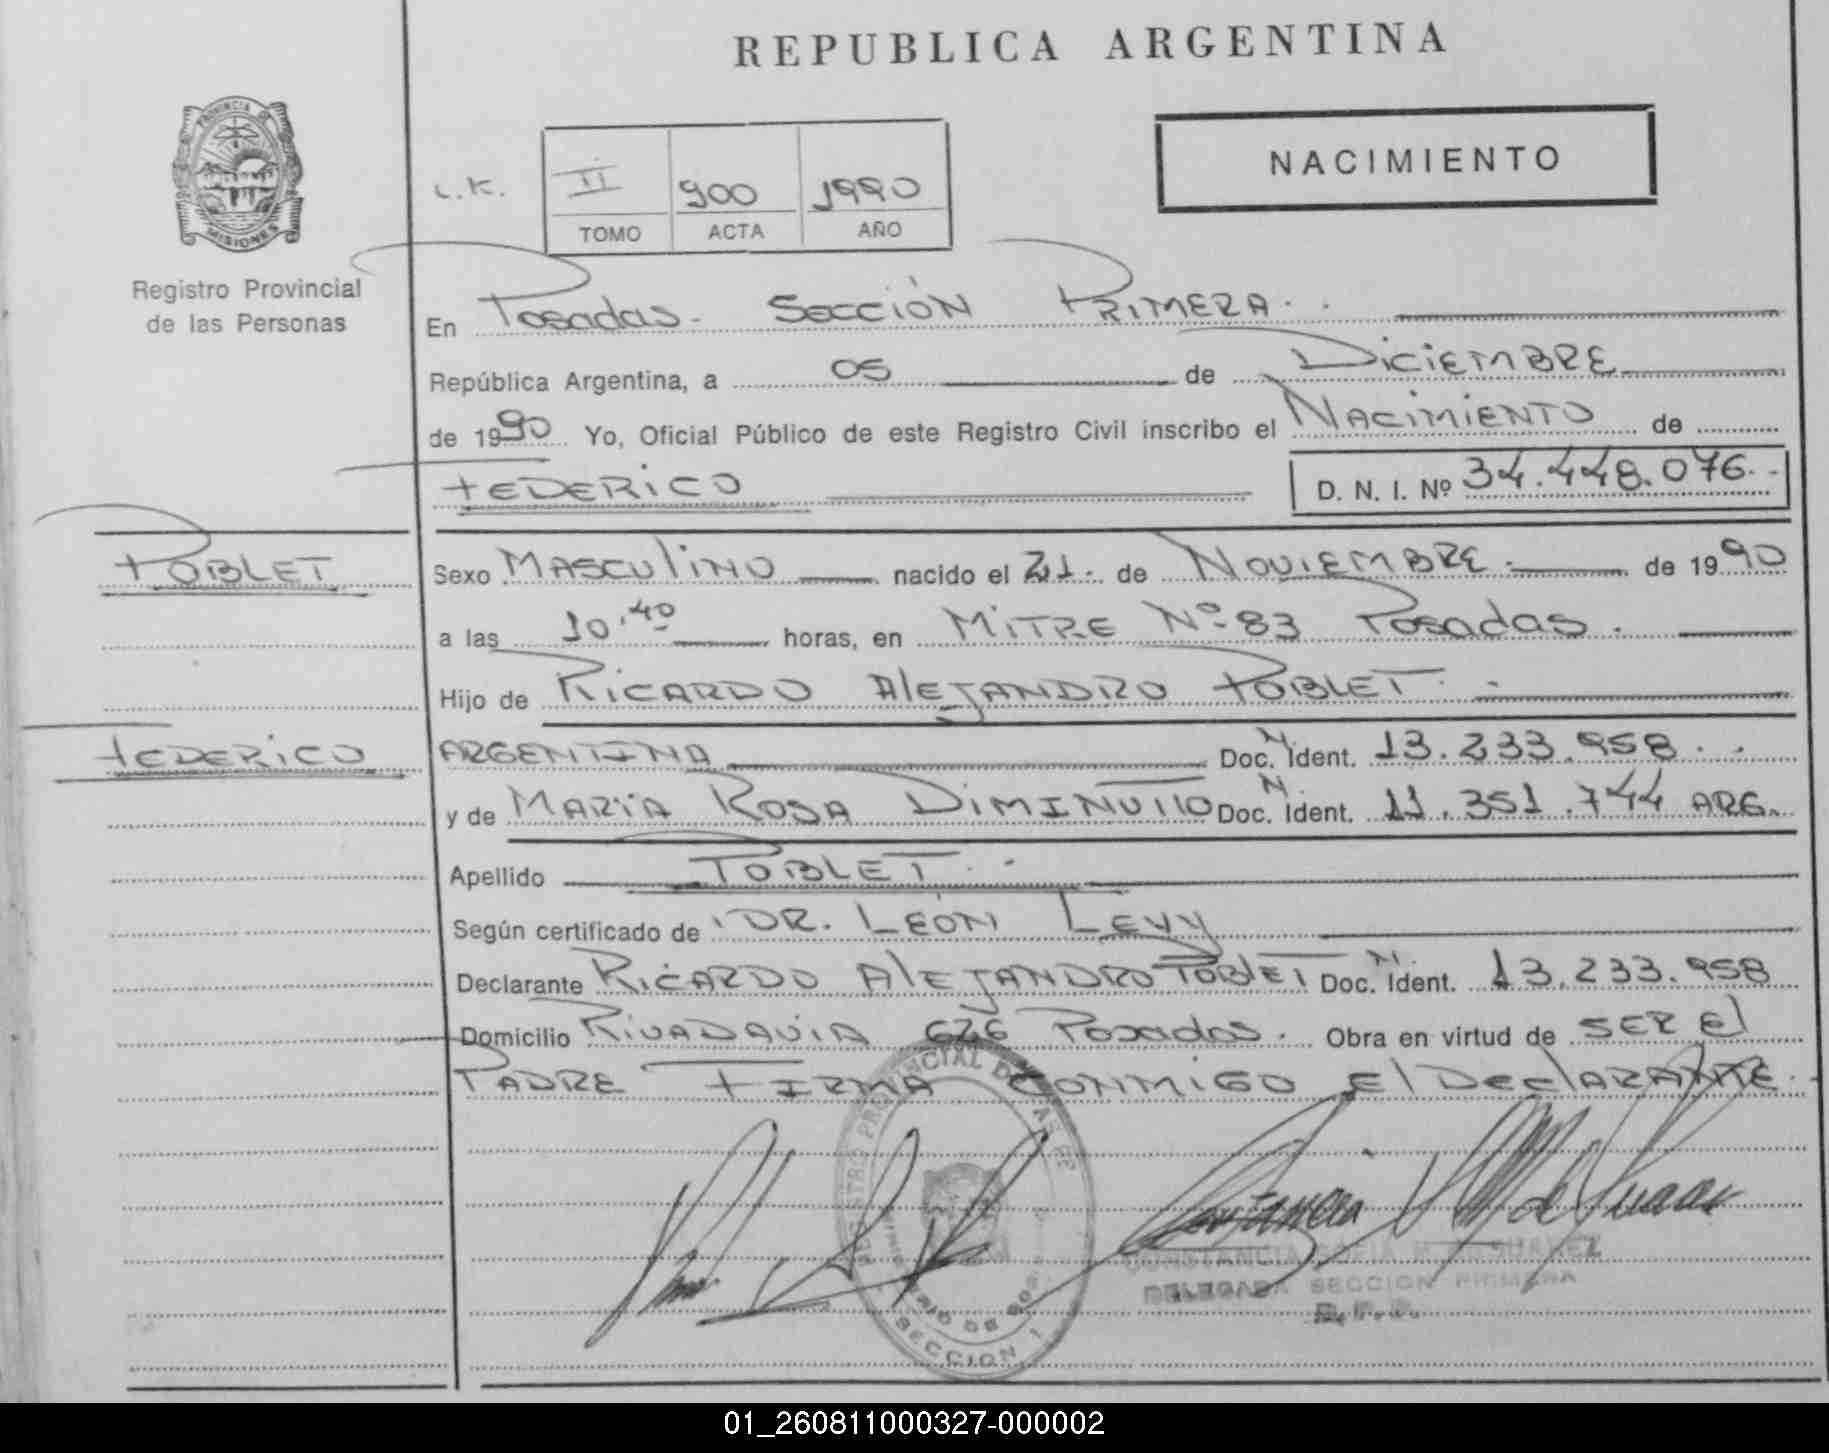 REPUBLICA ARGENTINA
PROVINCIA
MISIONES
Registro Provincial
de las Personas
NACIMIENTO
L.K.
II 900 1990
TOMO ACTA AÑO
En Posadas. Sección PRIMERA.
República Argentina, a 05 de DiciEMBRE
de 1990 Yo, Oficial Público de este Registro Civil inscribo el NACIMIENTO de
FEDERICO D. N. I. Nº 34.448.076.
POBLET
Sexo MASCULINO nacido el 21. de NOVIEMBRE. de 1990
a las 10.40 horas, en MITRE Nº 83 Posadas.
Hijo de RICARDO AlEJANDRO POBLET.
FEDERICO
ARGENTINA Doc. N. Ident. 13.233.958.
y de MARIA ROSA DIMINUTTO Doc. N. Ident. 11.351.744 ARG.
Apellido POBLET.
Según certificado de DR. LEÓN LEVY
Declarante RICARDO AlEJANDRO POBLET Doc. N. Ident. 13.233.958
Domicilio RIVADAVIA 626 Posadas. Obra en virtud de SER El
PADRE FIRMA CONMIGO El DEClARANTE.
SECCION 1
DELEGADA SECCION PRIMERA
01_260811000327-000002